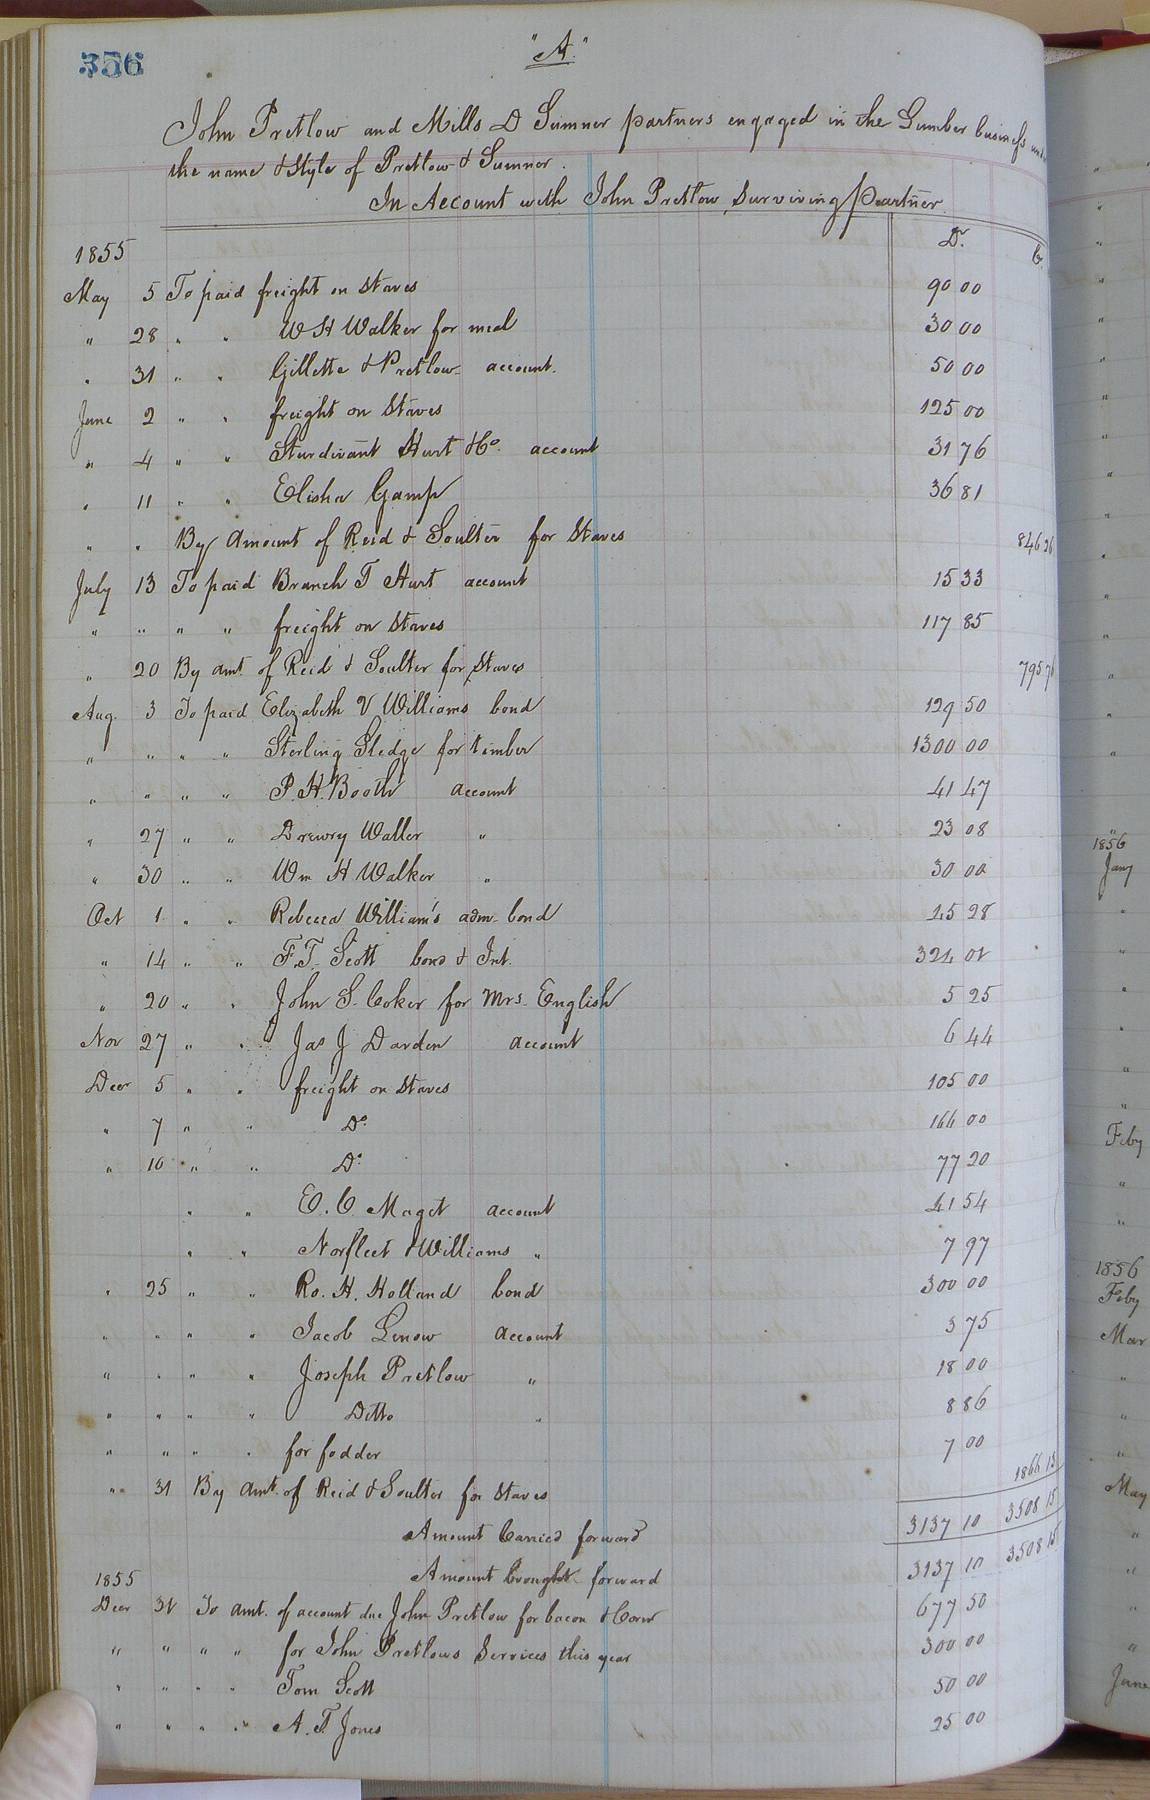 356
"A"
John Pretlow and Mills D Sumner partners engaged in the Lumber business under
the name & Style of Pretlow & Sumner.
In Account with John Pretlow Surviving partner
1855 Dr. Cr
May 5 To paid freight on Staves 90 00
" 28 " " W H Walker for meal 30 00
" 31 " " Gillette & Pretlow account. 50 00
June 2 " " freight on Staves 125 00
" 4 " " Sturdivant Hurt & Co. account 31 76
" 11 " " Elisha Gamp 36 81
" " By Amount of Reid & Soulter for Staves 846 26
July 13 To paid Branch T Hurt account 15 33
" " " " freight on Staves 117 85
" 20 By amt. of Reid & Soulter for Staves 795 76
Aug. 3 To paid Elizabeth V Williams bond 129 50
" " " " Sterling Sledge for timber 1300 00
" " " " P. H. Booth account 41 47
" 27 " " Drewry Waller " 23 08
" 30 " " Wm H Walker " 30 00
Oct 1 " " Rebecca William's adm bond 25 28
" 14 " " F. T. Scott bond & Int. 324 01
" 20 " " John S. Coker for Mrs. English 5 25
Nov 27 " " Jas J Darden account 6 44
Decr 5 " " freight on Staves 105 00
" 7 " " Do. 166 00
" 10 " " Do. 77 20
" " E. C. Maget account 41 54
" " Norfleet & Williams " 7 97
" 25 " " Ro. H. Holland bond 300 00
" " " " Jacob Lenow account 3 75
" " " " Joseph Pretlow " 18 00
" " " " Ditto " 8 86
" " " " for fodder 7 00
" 31 By amt. of Reid & Soulter for Staves 1866 13
Amount Carried forward 3137 10 3508 15
Amount brought forward 3137 10 3508 15
1855
Decr 31 To amt. of account due John Pretlow for bacon & Corn 677 50
" " " " for John Pretlows Services this year 300 00
" " " " Tom Scott 50 00
" " " " A. T. Jones 25 00
1856
Jany
Feby
1856
Feby
Mar
May
June